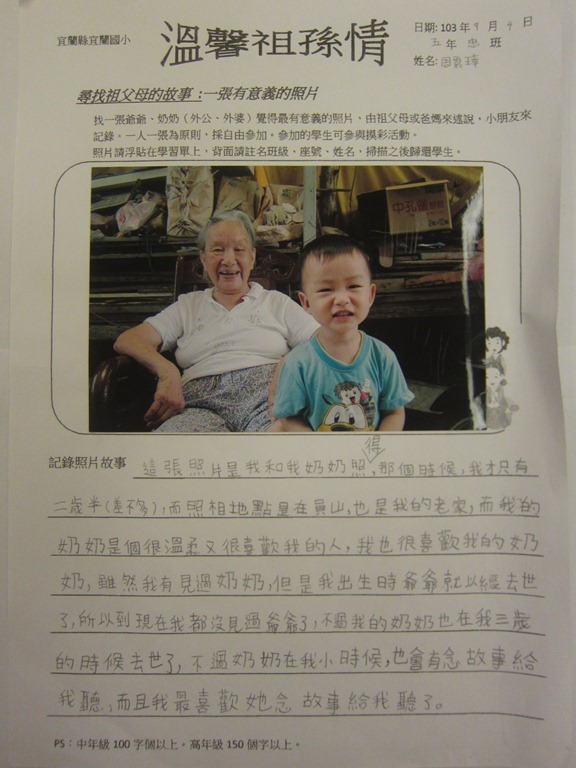 宜蘭縣宜蘭國小
溫馨祖孫情
日期: 103 年 9 月 9 日
五 年 忠 班
姓名:
尋找祖父母的故事：一張有意義的照片
找一張爺爺、奶奶（外公、外婆）覺得最有意義的照片，由祖父母或爸媽來述說，小朋友來
記錄。一人一張為原則，採自由參加。參加的學生可參與摸彩活動。
照片請浮貼在學習單上，背面請註名班級、座號、姓名，掃描之後歸還學生。
中孔
記錄照片故事
這張照片是我和我奶奶照得，那個時候，我才只有
二歲半(差不多)，而照相地點是在員山，也是我的老家，而我的
奶奶是個很溫柔又很喜歡我的人，我也很喜歡我的奶
奶，雖然我有見過奶奶，但是我出生時爺爺就以經去世
了，所以到現在我都沒見過爺爺了，不過我的奶奶也在我三歲
的時候去世了，不過奶奶在我小時候，也會有念故事給
我聽，而且我最喜歡她念故事給我聽了。
PS：中年級 100 字個以上。高年級 150 個字以上。